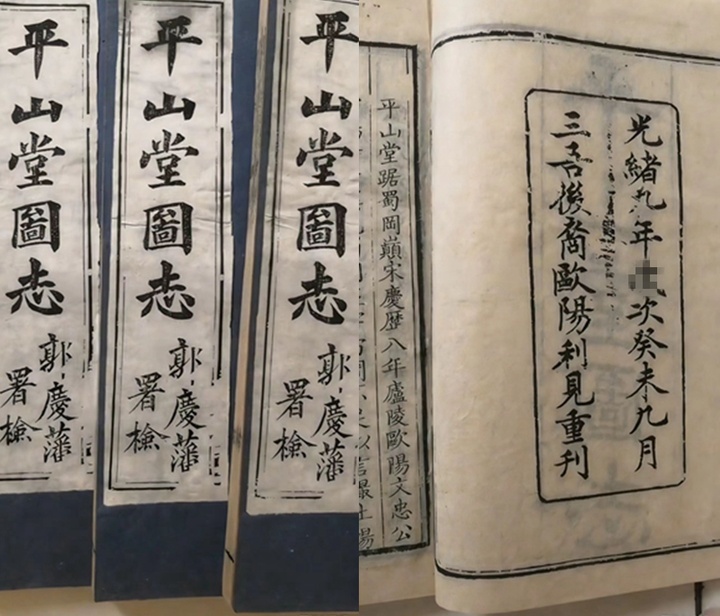 平山堂圖志
郭慶藩
署檢
平山堂圖志
郭慶藩
署檢
平山堂圖志
郭慶藩
署檢
平山堂踞蜀岡巔宋慶歷八年廬陵歐陽文忠公
光緒九年次癸未九月
三吾後裔歐陽利見重刊